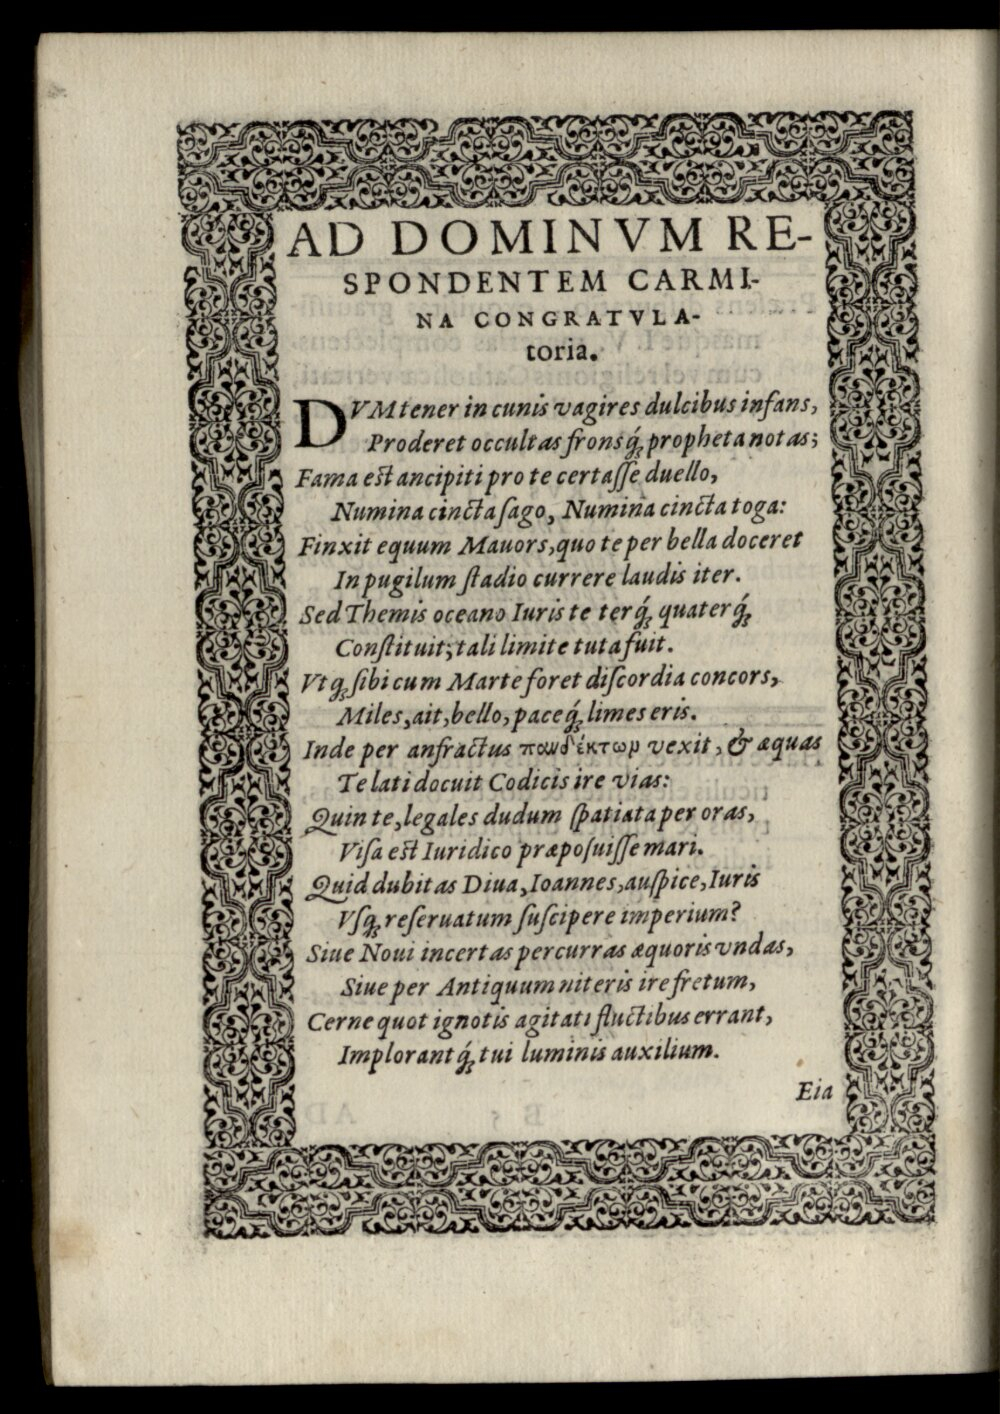 AD DOMINVM RE-
SPONDENTEM CARMI-
NA CONGRATVLA-
toria.
DVM tener in cunis vagires dulcibus infans,
Proderet occultas fronsq́; propheta notas;
Fama est ancipiti pro te certaſſe duello,
Numina cincta ſago, Numina cincta toga:
Finxit equum Mauors, quo te per bella doceret
In pugilum ſtadio currere laudis iter.
Sed Themis oceano Iuris te terq́; quaterq́;
Conſtituit; tali limite tuta fuit.
Vtq; ſibi cum Marte foret diſcordia concors,
Miles, ait, bello, paceq́; limes eris.
Inde per anfractus πανδέκτωρ vexit, & æquas
Te lati docuit Codicis ire vias:
Quin te, legales dudum ſpatiata per oras,
Viſa est Iuridico præpoſuiſſe mari.
Quid dubitas Diua, Ioannes, auſpice, Iuris
Vſq; reſeruatum ſuſcipere imperium?
Siue Noui incertas percurras æquoris vndas,
Siue per Antiquum niteris ire fretum,
Cerne quot ignotis agitati fluctibus errant,
Implorantq́; tui luminis auxilium.
Eia